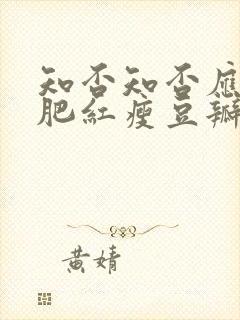 知否知否應
肥紅瘦豆瓣
黃婧